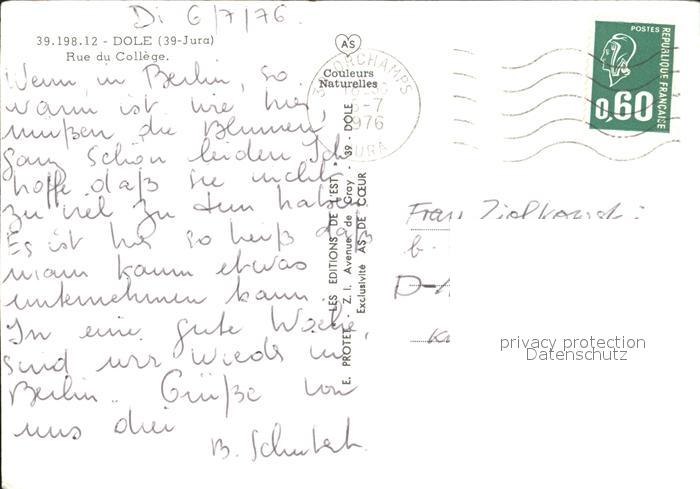 Di 6/7/76.
39.198.12 - DOLE (39-Jura)
Rue du Collège.
AS
Couleurs
Naturelles
Wenn in Berlin, so
warm ist wie hier,
mußen die Blumen,
ganz schön leiden. Ich
hoffe, daß sie nicht
zu viel zu tun haben.
Es ist hier so heiß daß
mann kaum etwas
unternehmen kann.
In eine gute Woche,
sind wir wieder in
Berlin. Grüße von
uns drei
B. Schubert.
E. PROTET - LES EDITIONS DE L'EST
Z.I. Avenue de Gray - 39 - DOLE
Exclusivité AS DE CŒUR
ORCHAMPS
-7
1976
JURA
POSTES
REPUBLIQUE FRANÇAISE
0,60
Frau
b.
D-
privacy protection
Datenschutz